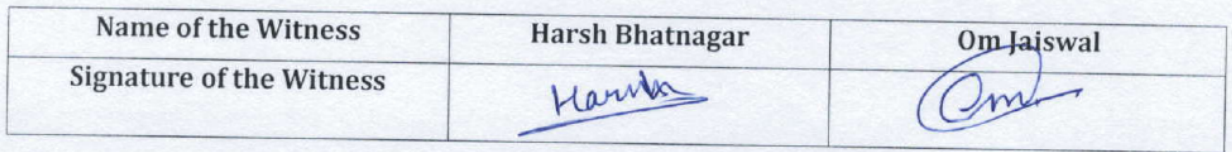 Name of the Witness Harsh Bhatnagar Om Jaiswal
Signature of the Witness Harsh Om